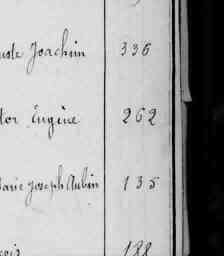 Joachim 336
Eugène 262
Marie Joseph Aubin 135
188